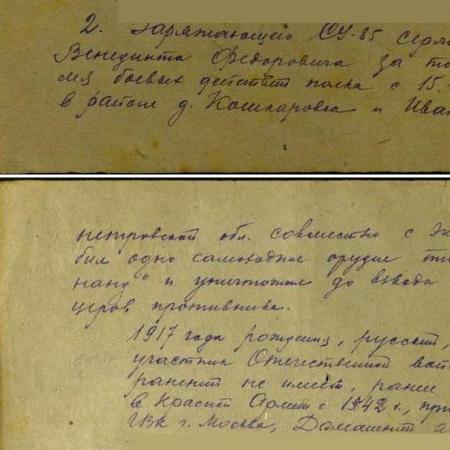 2. Заряжающего СУ-85 серж
Венедикта Федоровича за то
мя боевых действий полка с 15.
в районе д. Кошкаровка и Иван
петровской обл. совместно с эк
бил одно самоходное орудие ти
нанд" и уничтожил до взвода
церов противника.
1917 года рождения, русский,
участник Отечественной вой
ранений не имеет, ранее
в Красной Армии с 1942 г., при
ГВК г. Москва, Домашний а